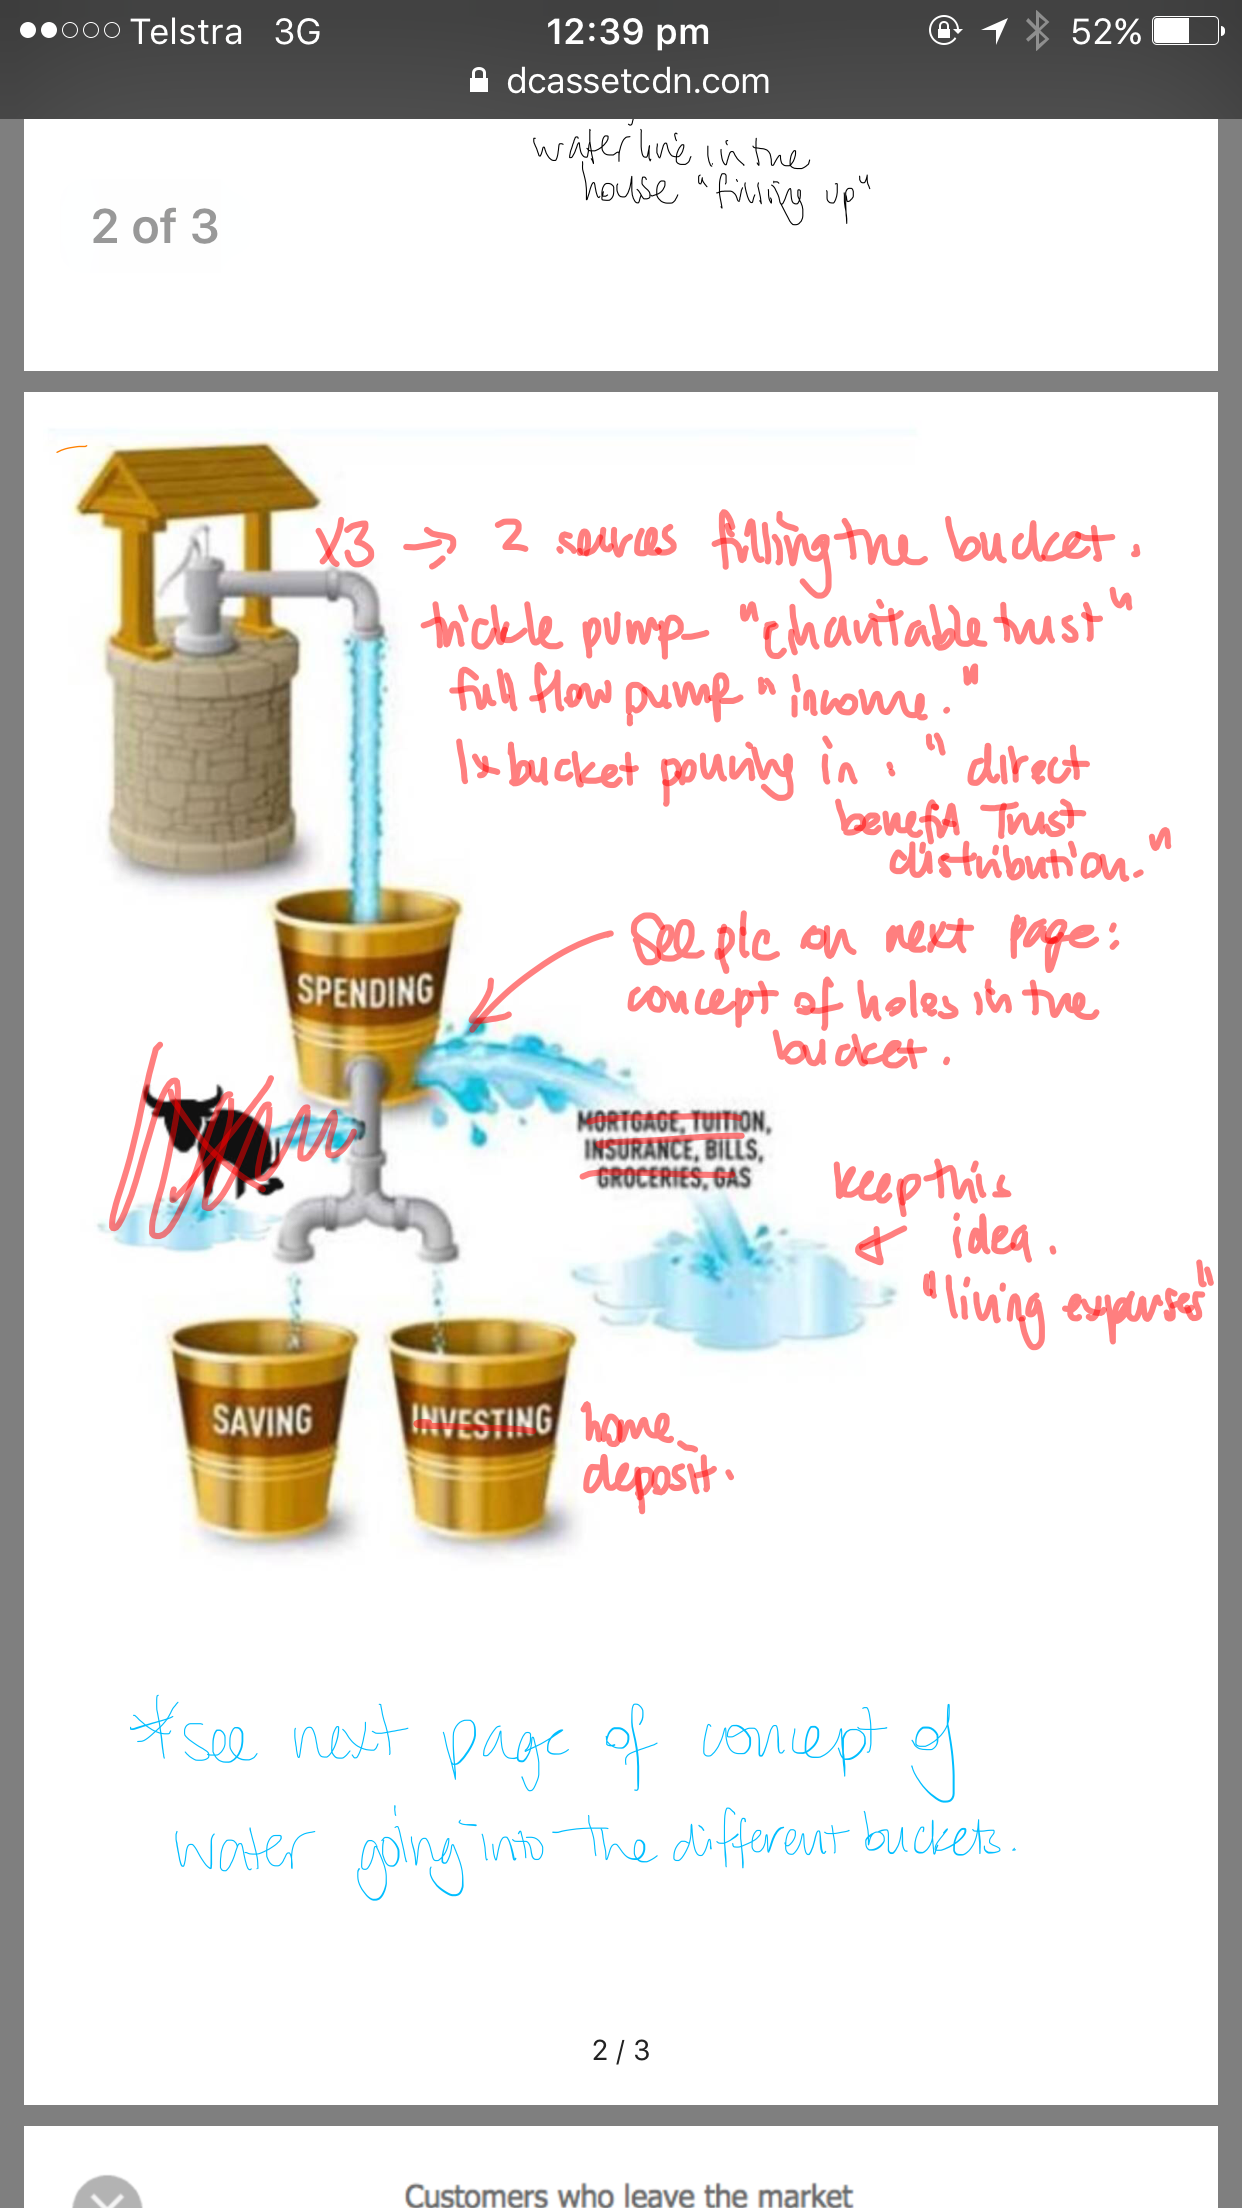 Telstra 3G 12:39 pm 52%
dcassetcdn.com
water line in the
house "filling up"
2 of 3
x3 → 2 sources filling the bucket.
trickle pump - "charitable trust"
full flow pump "income."
1x bucket pouring in. "direct
benefit Trust
distribution."
SPENDING
See pic on next page:
concept of holes in the
bucket.
MORTGAGE, TUITION,
INSURANCE, BILLS,
GROCERIES, GAS
keep this
idea.
"living expenses"
SAVING
INVESTING
home
deposit.
*see next page of concept of
water going into the different buckets.
2 / 3
Customers who leave the market